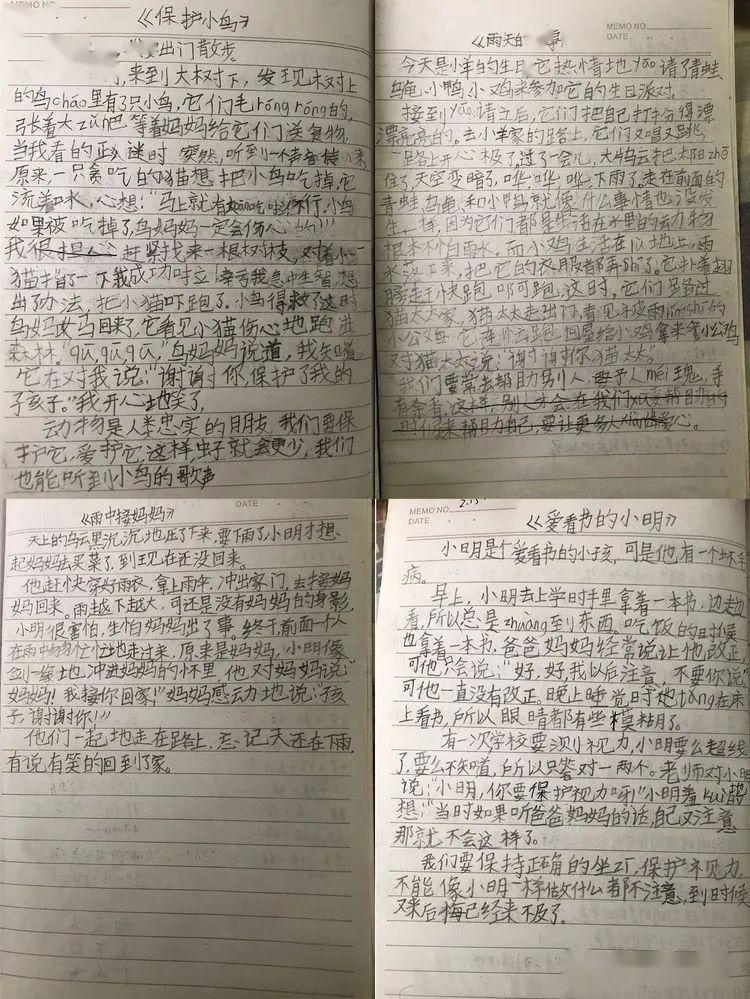 《保护小鸟》
出门散步
来到大树下，发现树上
的鸟cháo里有了只小鸟，它们毛róng róng的，
张着大zuǐ巴等着妈妈给它们送食物，
当我看的正入迷时 突然，听到一个声音传来
原来一只贪吃的猫想把小鸟吃掉，它
流着口水，心想：“马上就有
如果被吃掉了，鸟妈妈一定会伤心的！”
我很担心 赶紧找来一根树枝，对着小
猫指了一下我成功 我急中生智，想
出了办法，把小猫吓跑了。小鸟得救了这时
鸟妈妈回来了，它看见小猫伤心地跑进
森林。“gū，gū，gū，”鸟妈妈说道，我知道
它在对我说：“谢谢你，保护了我的
孩子。”我开心地笑了，
动物是人类忠实的朋友，我们要保
护它，爱护它，这样虫子就会更少，我们
也能听到小鸟的歌声
MEMO NO.
DATE
《雨天的 事
今天是小羊的生日，它热情地yāo请了青蛙
乌龟，小鸭，小鸡来参加它的生日派对。
接到yāo请之后，它们把自己打扮得漂
漂亮亮的。去小羊家的路上，它们又唱又跳
一路上开心极了，过了一会儿，大乌云把太阳zhē
住了，天空变暗了，哗，哗，哗，下雨了。走在前面的
青蛙，乌龟，和小鸭就像什么事情也没发
生一样，因为它们都是生活在水里的动物
根本不怕雨水，而小鸡生活在 地上，雨
水落下来，把它的衣服都弄shī了。它扑着翅
膀赶快跑 可跑，这时，它们路过
猫太太家，猫太太走出门，看见被雨lín shī的
小公鸡 它连忙去跑回屋给小鸡拿来伞小公鸡
对猫太太说：“谢谢你，猫太太”
我们要常去帮助别人，予人méi瑰，手
有余香，这样，别人才会在我们xū要帮助的
时候来帮助自己，要让更多人 爱心。
DATE
《雨中接妈妈》
天上的乌云黑沉沉地压了下来，要下雨了，小明才想
起妈妈去买菜了，到现在还没回来。
他赶快穿好雨衣，拿上雨伞，冲出家门，去接妈
妈回来。雨越下越大，可还是没有妈妈的身影，
小明很害怕，生怕妈妈出了事。终于，前面一个人
在雨中匆匆忙忙地走过来，原来是妈妈，小明像
箭一样地冲进妈妈的怀里，他又对妈妈说：
“妈妈！我接你回家！”妈妈感动地说：“孩
子，谢谢你！”
他们一起地走在路上，忘记天还在下雨，
有说有笑的回到了家。
MEMO NO.
DATE
《爱看书的小明》
小明是个爱看书的小孩，可是他有一个坏毛
病。
早上，小明去上学时手里拿着一本书，边走边
看，所以总是zhuàng到东西。吃饭的时候
也拿着一本书，爸爸妈妈经常说让他改正，
可他只会说：“好，好，我以后注意，不要你说”
可他一直没有改正。晚上睡觉时他tǎng在床
上看书，所以眼睛都有些模糊了。
有一次学校要测视力，小明要么超线
了，要么不知道，所以只答对一两个。老师对小明
说：“小明，你要保护视力呀”小明羞kuì
想：“当时如果听爸爸妈妈的话，自己又注意
那就不会这样了。
我们要保持正确的坐 ，保护视力，
不能像小明一样做什么都不注意，到时候
又来后悔已经来不及了。